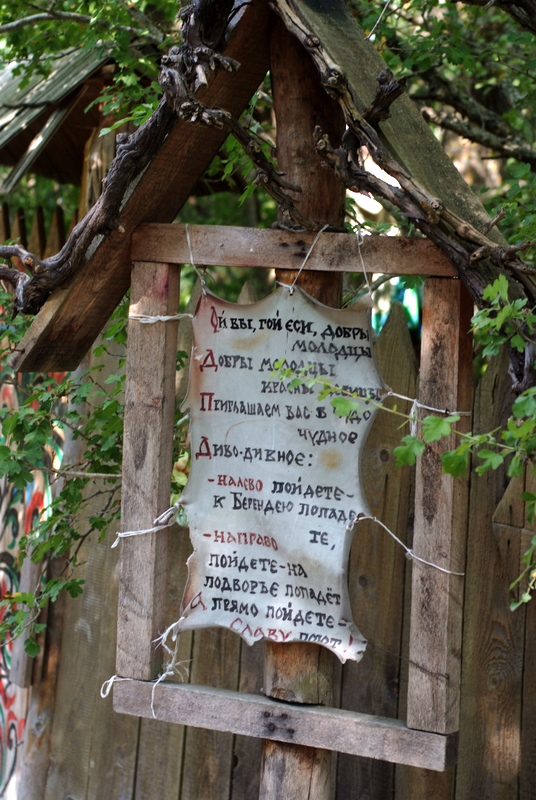 Ой вы, гой єси, добры
молодцы
Добры молодцы
красны
Приглашаем вас в чудо
чудное
Диво-дивное:
-налево пойдете-
к Берендею попаде
-направо те,
пойдете-на
подворье попадёт
А прямо пойдете-
славу !